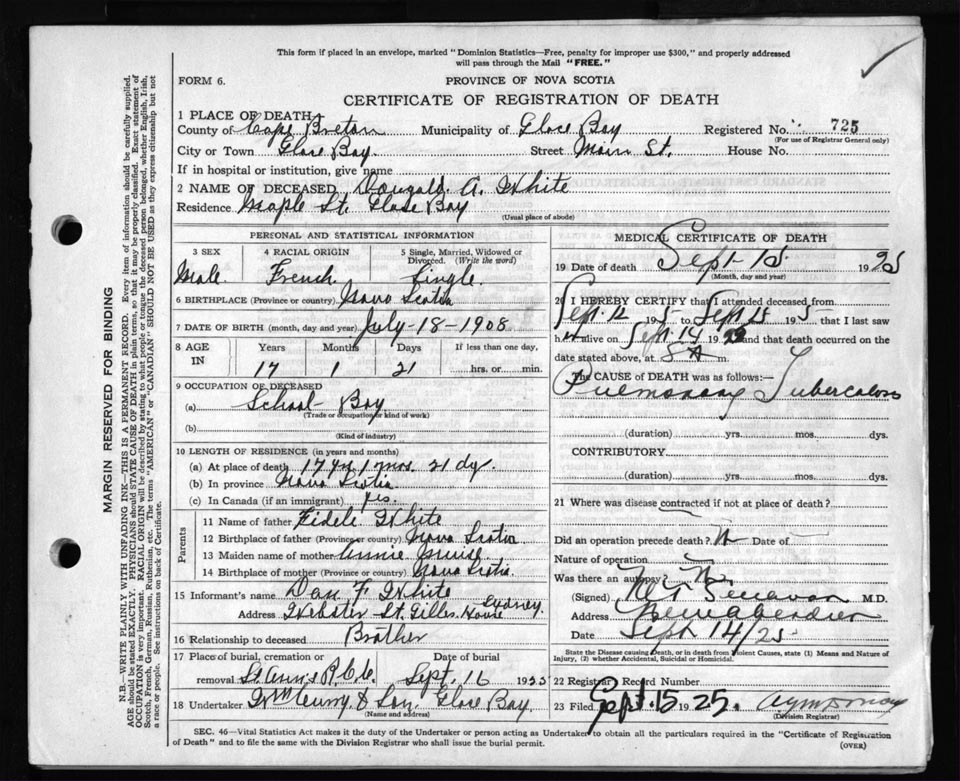 This form if placed in an envelope, marked "Dominion Statistics—Free, penalty for improper use $300," and properly addressed
will pass through the Mail "FREE."
FORM 6.
PROVINCE OF NOVA SCOTIA
CERTIFICATE OF REGISTRATION OF DEATH
1 PLACE OF DEATH
County of Cape Breton Municipality of Glace Bay Registered No. 725
(For use of Registrar General only)
City or Town Glace Bay Street Main St. House No.
If in hospital or institution, give name
2 NAME OF DECEASED Dougald A. White
Residence Maple St. Glace Bay
(Usual place of abode)
PERSONAL AND STATISTICAL INFORMATION
3 SEX 4 RACIAL ORIGIN 5 Single, Married, Widowed or Divorced. (Write the word)
Male French Single
6 BIRTHPLACE (Province or country) Nova Scotia
7 DATE OF BIRTH (month, day and year) July-18-1908
8 AGE IN Years Months Days If less than one day,
17 1 21 hrs. or min.
9 OCCUPATION OF DECEASED
(a) School Boy
(Trade or occupation or kind of work)
(b)
(Kind of industry)
10 LENGTH OF RESIDENCE (in years and months)
(a) At place of death 17 yrs 1 mos. 21 dy.
(b) In province Nova Scotia
(c) In Canada (if an immigrant) yes.
Parents
11 Name of father Fidele White
12 Birthplace of father (Province or country) Nova Scotia
13 Maiden name of mother Annie
14 Birthplace of mother (Province or country) Nova Scotia.
15 Informant's name Dan F. White
Address Webster St. Gillis House Sydney.
16 Relationship to deceased Brother
17 Place of burial, cremation or removal St Ann's R.C.C. Date of burial Sept. 16 1925
18 Undertaker & Son. Glace Bay.
(Name and address)
MEDICAL CERTIFICATE OF DEATH
19 Date of death Sept 15 1925
(Month, day and year)
20 I HEREBY CERTIFY that I attended deceased from
Sept. 12 1925 to Sept 15 1925 that I last saw
h alive on Sept. 14 19 and that death occurred on the
date stated above, at 5 A m.
The CAUSE OF DEATH was as follows:
Pulmonary Tuberculosis
(duration) yrs. mos. dys.
CONTRIBUTORY
(duration) yrs. mos. dys.
21 Where was disease contracted if not at place of death?
Did an operation precede death? Date of
Nature of operation
Was there an autopsy? No
(Signed) M.D.
Address New Aberdeen
Date Sept 14/25
State the Disease causing Death, or in death from Violent Causes, state (1) Means and Nature of
Injury, (2) whether Accidental, Suicidal or Homicidal.
22 Registrar's Record Number
23 Filed Sept. 15 1925.
(Division Registrar)
SEC. 46—Vital Statistics Act makes it the duty of the Undertaker or person acting as Undertaker to obtain all the particulars required in the "Certificate of Registration
of Death" and to file the same with the Division Registrar who shall issue the burial permit.
(OVER)
MARGIN RESERVED FOR BINDING
N.B.—WRITE PLAINLY WITH UNFADING INK—THIS IS A PERMANENT RECORD. Every item of information should be carefully supplied.
AGE should be stated EXACTLY. PHYSICIANS should STATE CAUSE OF DEATH in plain terms, so that it may be properly classified. Exact statement of
OCCUPATION is very important. RACIAL ORIGIN will be described by stating to what people or tongue the deceased person belonged, whether English, Irish,
Scotch, French, German, Russian, Ruthenian, etc. The terms "AMERICAN" or "CANADIAN" SHOULD NOT BE USED as they express citizenship but not
a race or people. See instructions on back of Certificate.